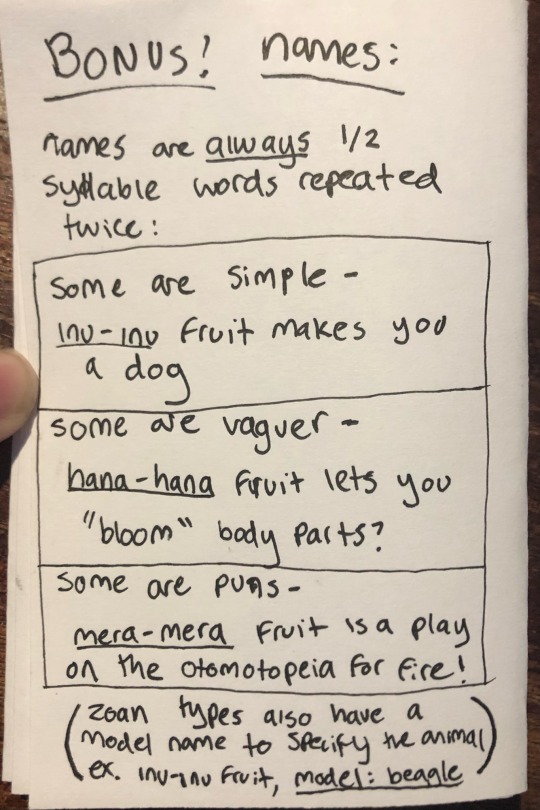 BONUS! names:
names are always 1/2
syllable words repeated
twice:
some are simple -
inu-inu fruit makes you
a dog
some are vaguer -
hana-hana fruit lets you
"bloom" body parts?
some are puns-
mera-mera fruit is a play
on the otomotopeia for fire!
(zoan types also have a
model name to specify the animal)
ex. inu-inu fruit, model: beagle